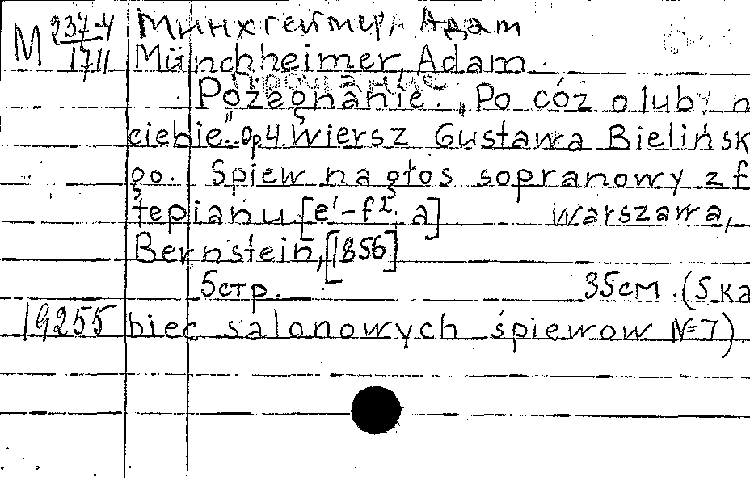 М 237-4/1711
Минхгеймер, Адам
Münchheimer, Adam.
Pożegnanie. "Po cóż o luby
ciebie". Op4 wiersz Gustawa Bielińsk
go. Śpiew na głos sopranowy z f
tepianu [e¹-f², a] Warszawa,
Bernstein, [1856]
5стр. 35см. (Skar
19255 biec salonowych śpiewow №7)